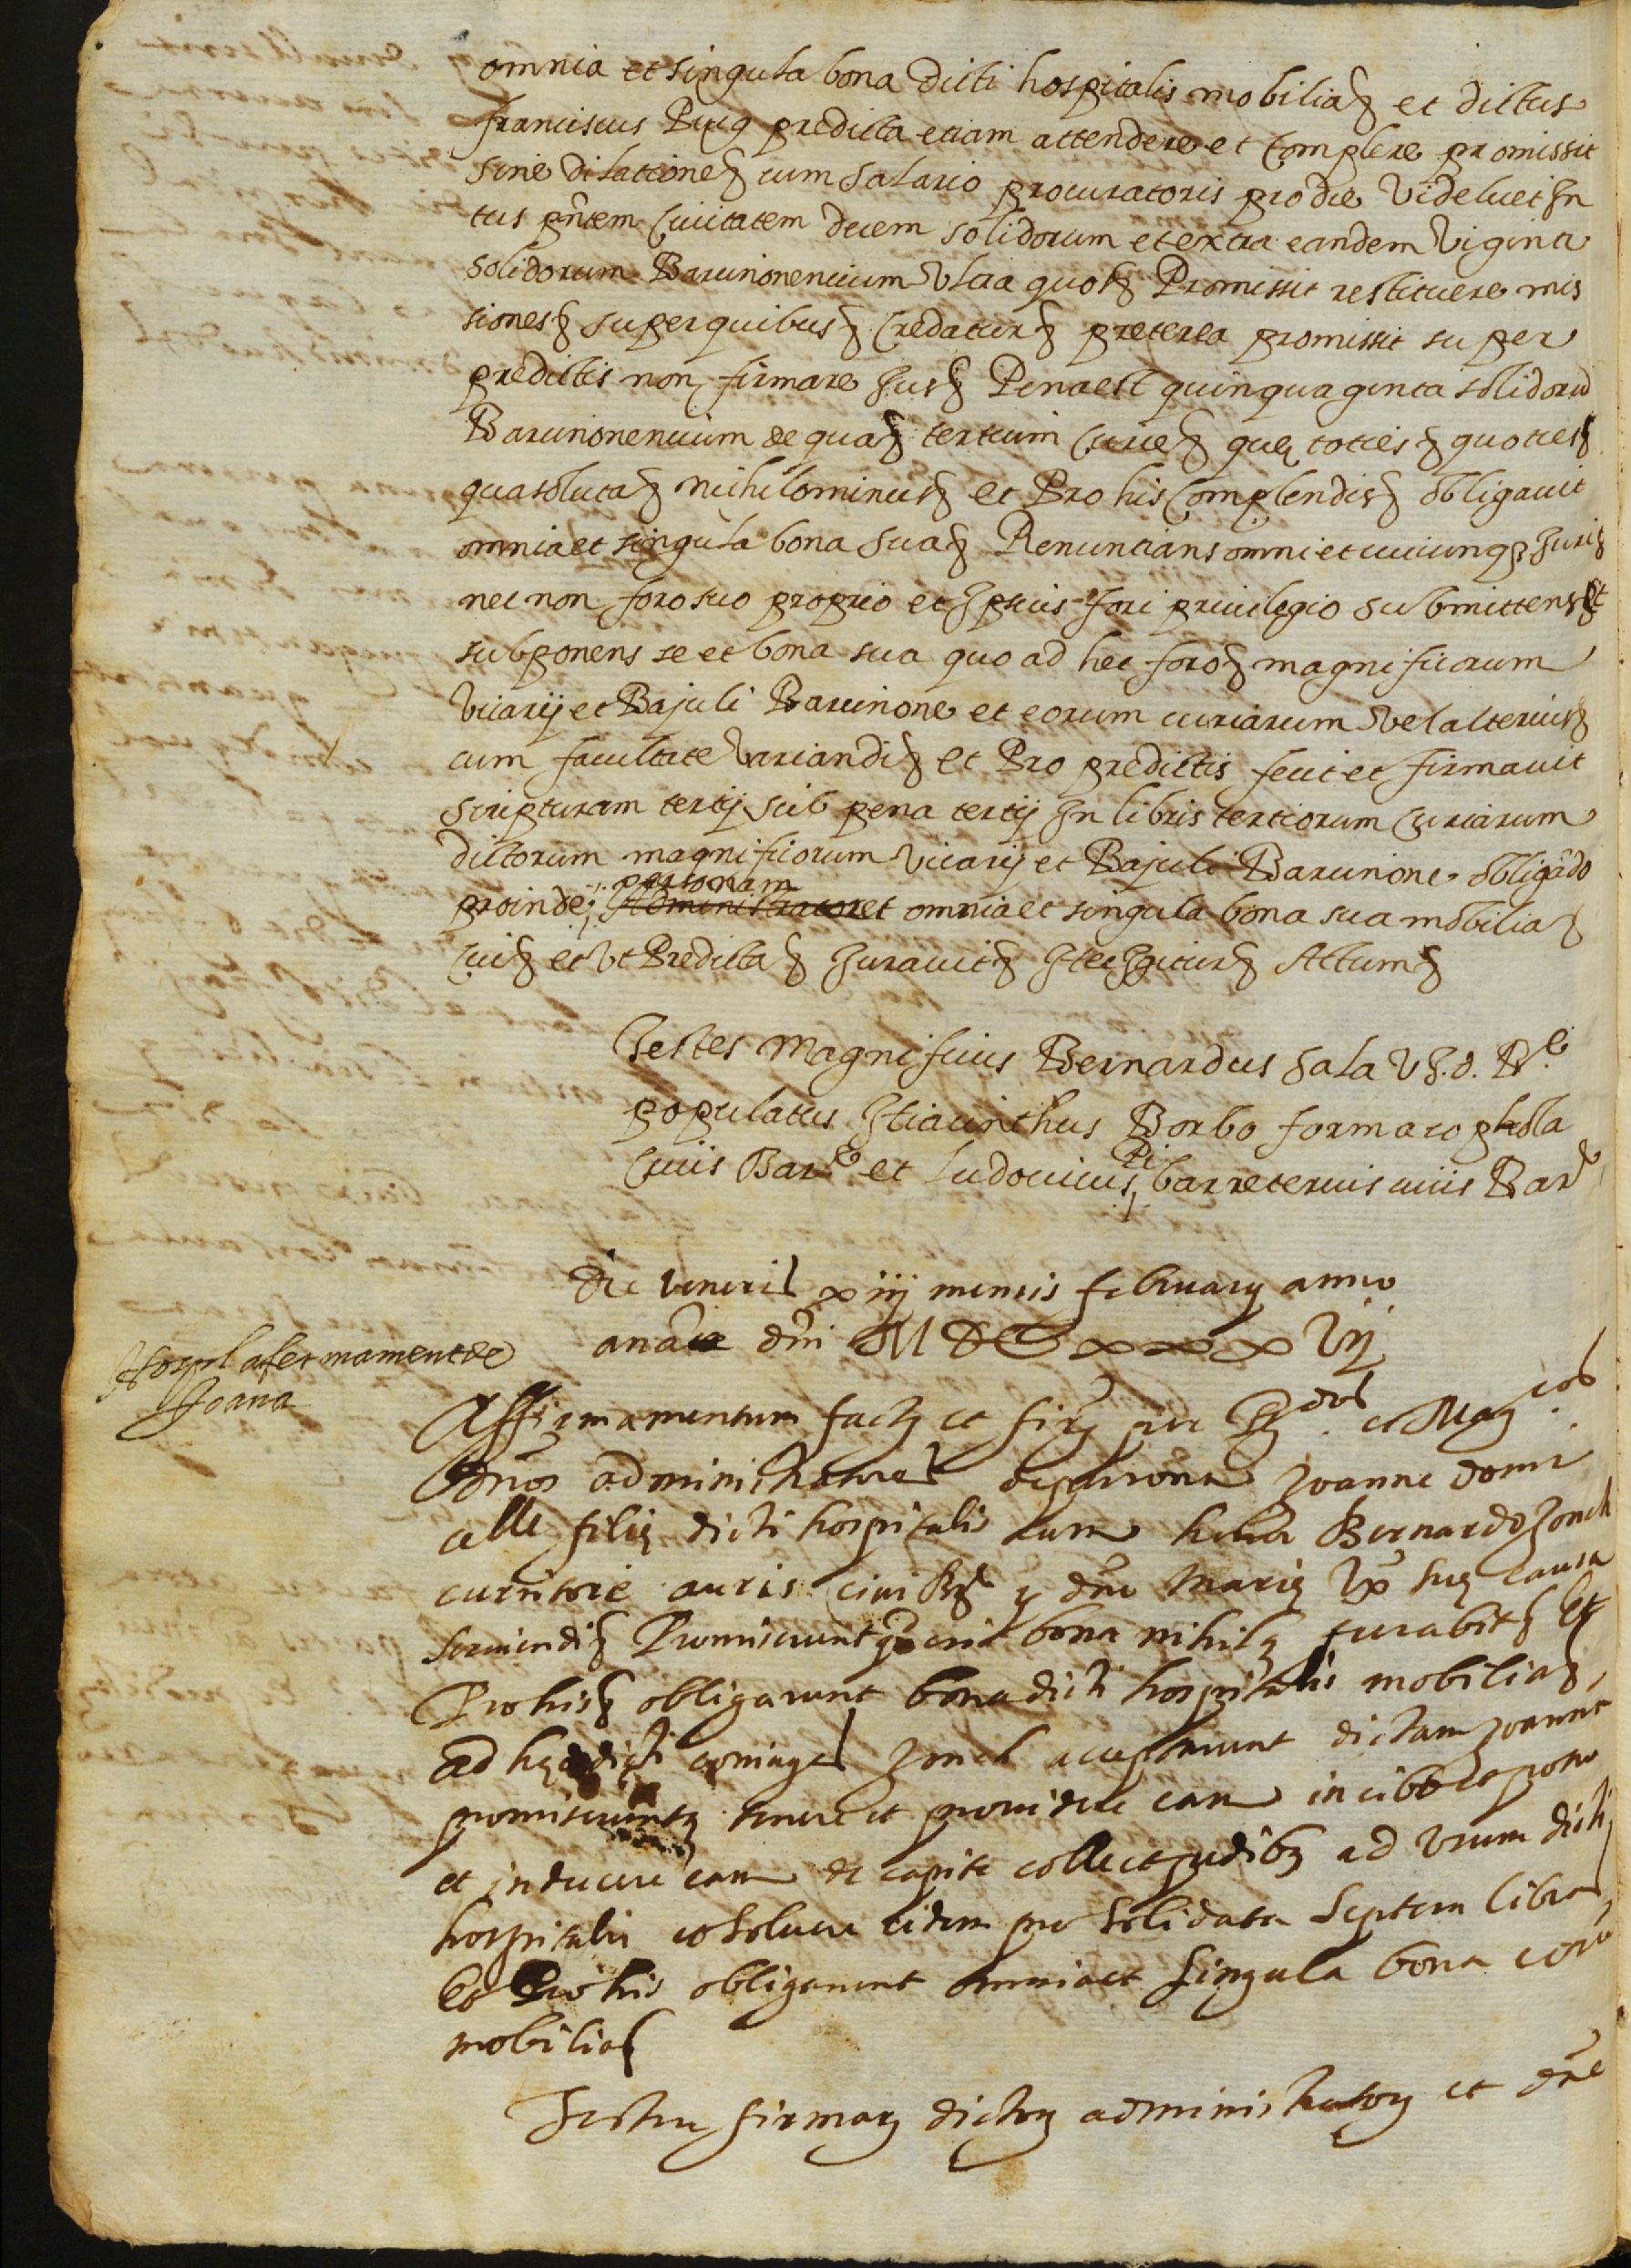 omnia et singula bona dicti hospitalis mobilia et dictus
franciscus Puig predicta etiam attendere et complere promissit
sine dilatione cum salario procuratoris pro die videlicet In
tus pñtem Civitatem decem solidorum et extra eandem viginti
solidorum Barcinonencium ultra quos Promissit restituere mis
siones super quibus Credatur preterea promissit super
predictis non firmare Jus Pena est quinquaginta solidorũ
Barcinonencium de qua tertium Curie que toties quoties
qua soluta nihilominus et Pro his complendis obligavit
omnia et singula bona sua Renuncians omni et cuicunq Juri
nec non foro suo proprio et Ipsius fori privilegio submittens et
subponens se et bona sua quo ad hec foro magnificorum
vicarij et Bajuli Barcinone et eorum curiarum vel alterius
cum facultate variandi et Pro predictis fecit et firmavit
scripturam tertij sub pena tertij In libris tertiorum Curiarum
dictorum magnificorum Vicarij et Bajuli Barcinone obligãdo
personam
proinde Administrator et omnia et singula bona sua mobilia
Cui et ut Predicta Juravit Hec Igitur Actum
Testes magnificus Bernardus Sala V.J.d. Be
populatus Hiacinthus Borbo formacophola
Civis Bare et Ludovicus Pi barreterius civis Bare
Die veneris xiij mensis february anno
a natẽ dñi M DC xxx Vij
Hospl afermament de
Joana
Affirmamentum fact et fir per Rdos et Magcos
Dños administratores de persona Joanne domi
celle filie dicti hospitalis cum Bernardo Jonch
auris civi Br y dñe Marie Vx sue causa
serviendi Promiserunt erit bona nihil furabit Et
Pro his obligarunt bona dicti hospitalis mobilia
ad hec dicti coniuges Jonch acceptarunt dictam Joanne
promiserunt tenere et providere eam in cibo et potu
et inducere eam de capite collo et pedibus ad usum dicti
hospitalis et solvere eidem pro solidata septem libras
Et Pro his obligarunt omnia et singula bona eorũ
mobilia
Testes firmar dictor administrator et dñe